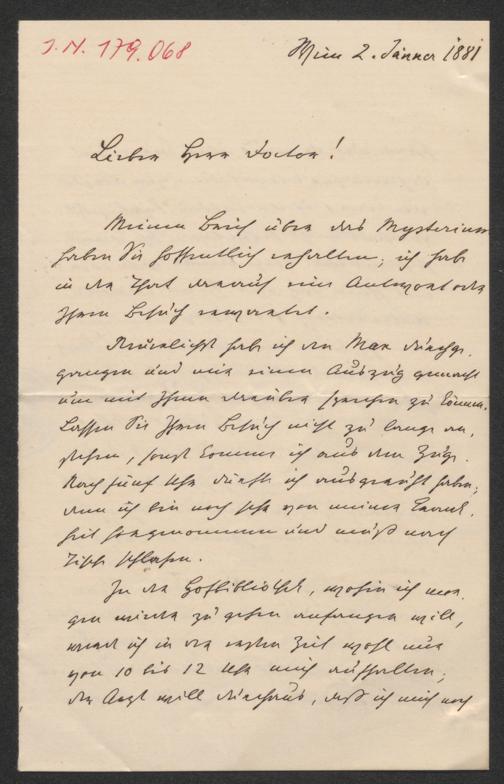 J.N. 179.068
Wien 2. Jänner 1881
Lieber Herr Doctor!
Meinen Brief über das Mysterium
haben Sie hoffentlich erhalten; ich habe
in der That darauf eine Antwort oder
Ihren Besuch erwartet.
Neuerlichst habe ich den Max durchge-
gangen und mir einen Auszug gemacht
um mit Ihnen darüber sprechen zu können.
Lassen Sie Ihren Besuch nicht zu lange an-
stehen, sonst komme ich aus dem Zuge.
Nach fünf Uhr dürfte ich ausgeruht haben;
denn ich bin noch sehr von meiner Krank-
heit hergenommen und muß nach
Tisch schlafen.
In der Hofbibliothek, wohin ich mor-
gen wieder zu gehen anfangen will,
werde ich in der ersten Zeit wohl nur
von 10 bis 12 Uhr mich aufhalten;
der Arzt will durchaus, daß ich mich noch